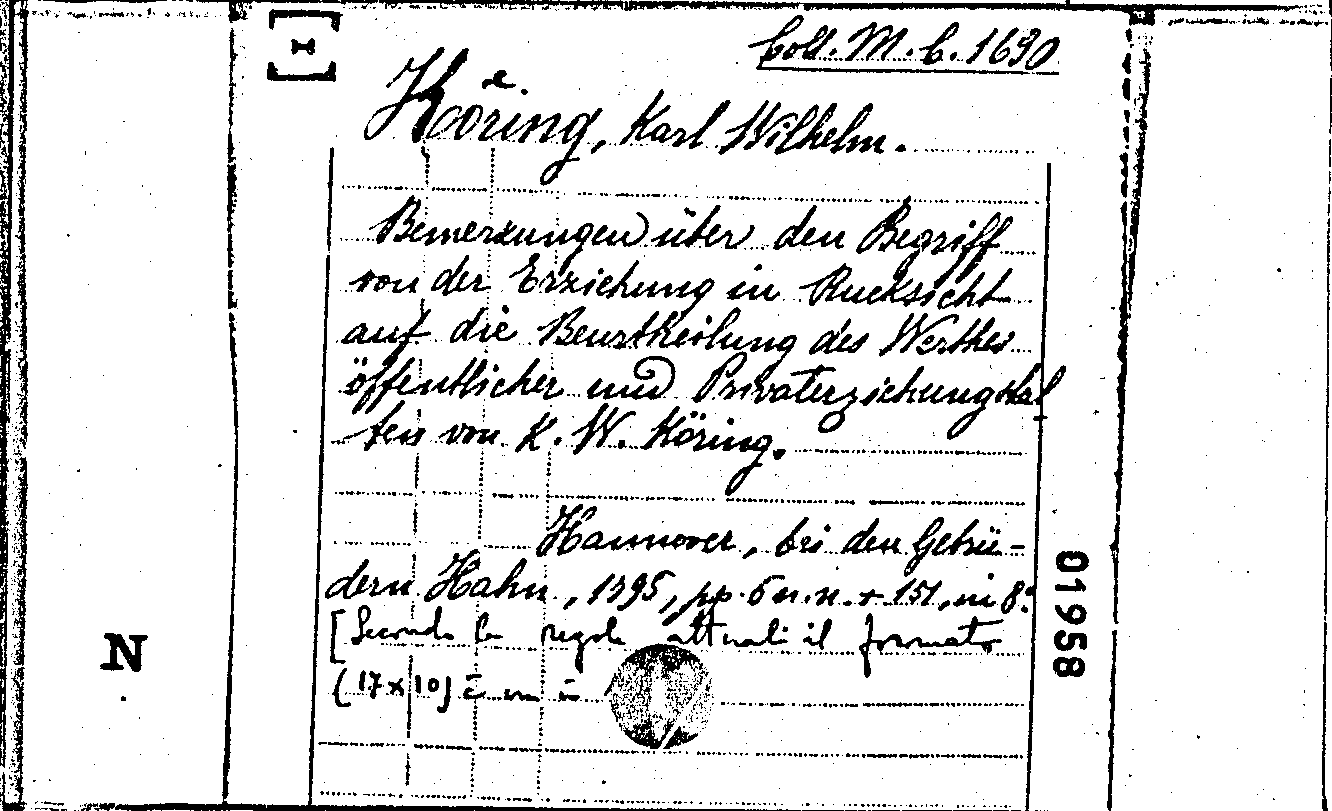 Coll. M. C. 1690
Köring, Karl Wilhelm.
Bemerkungen über den Begriff
von der Erziehung in Rucksicht
auf die Beurtheilung des Werthes
öffentlicher und Privaterziehungstal
ten von K. W. Köring.
Hannover, bei den Gebrü-
dern Hahn, 1795, pp. 6 n. n. + 151, in 8.°
[Secondo le regole attuali il formato
(17 x 10) è un in
01958
N